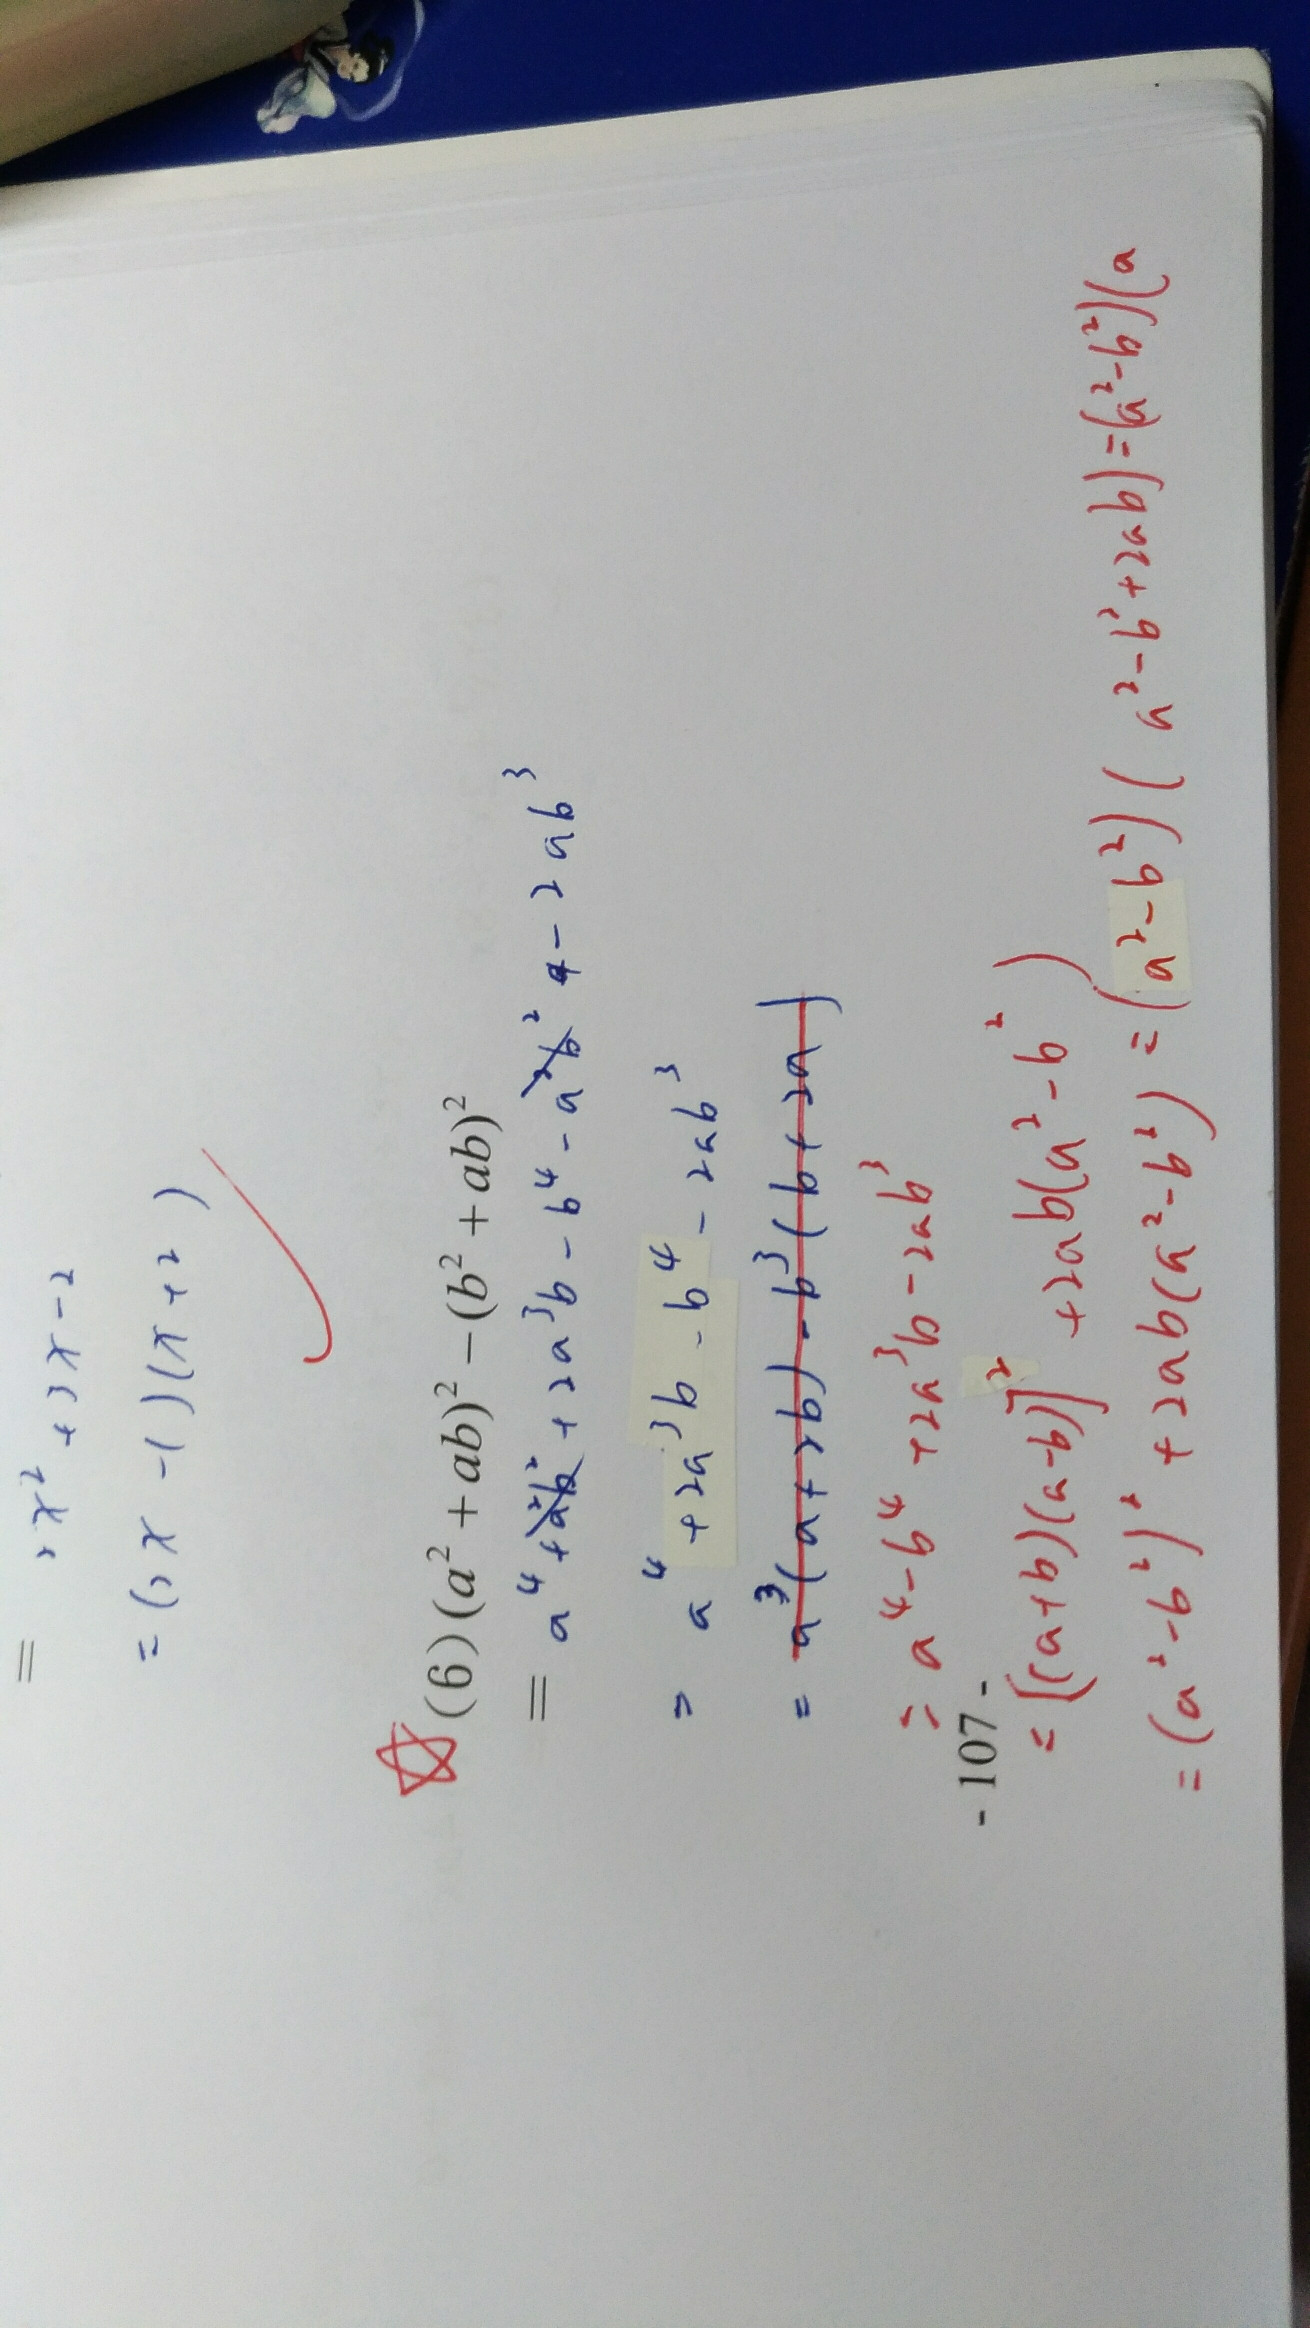 = 3x² + 5x - 2
= (3x - 1)(x + 2)
(6) (a² + ab)² - (b² + ab)²
= a⁴ + a²b² + 2a³b - b⁴ - a²b² - 2ab³
= a⁴ + 2a³b - b⁴ - 2ab³
= a³(a + 2b) - b³(b + 2a)
= a⁴ - b⁴ + 2a³b - 2ab³
- 107 -
= + 2ab(a² - b²)
= (a² - b²) + 2ab(a² - b²) = (a² - b²)( a² - b² + 2ab) = (a² - b²)(a